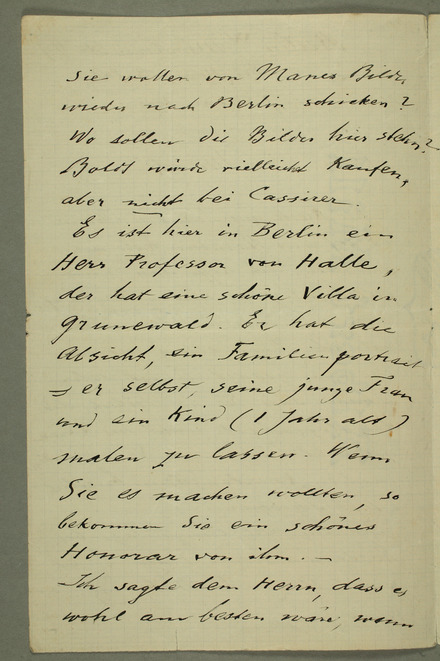 Sie wollen von Manes Bilder
wieder nach Berlin schicken?
Wo sollen die Bilder hier stehn?
würde vielleicht Kaufen,
aber nicht bei Cassirer.
Es ist hier in Berlin ein
Herr Professor von Halle,
der hat eine schöne Villa in
Grunewald. Er hat die
Absicht, ein Familienportrait
= er selbst, seine junge Frau
und ein Kind (1 Jahr alt)
malen zu lassen. Wenn
Sie es machen wollten, so
bekommen Sie ein schönes
Honorar von ihm. —
Ich sagte dem Herrn, dass es
wohl am besten wäre, wenn